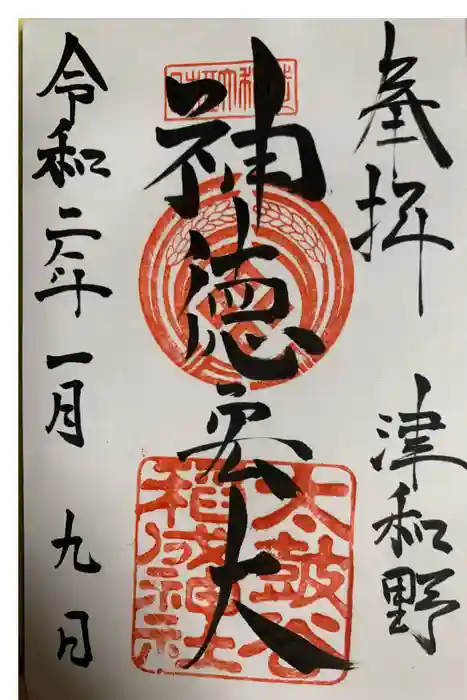 奉拝 津和野
神徳宏大
太鼓谷
稲成神社
令和二年一月九日